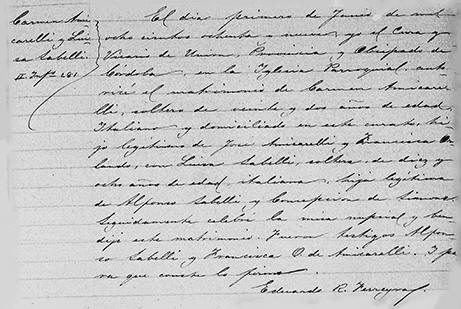 Carmen Ami
carelli y Lui
sa Sabelli
El dia primero de Junio de mil
ocho cientos ochenta y nueve, yo el Cura y
Vicario de Union, Provincia y Obispado de
Cordoba, en la Iglesia Parroquial, auto
rizé el matrimonio de Carmen Amicare
lli, soltero de veinte y dos años de edad,
Italiano y domiciliado en este curato, hi
jo legitimo de José Amicarelli y Francisca Or
lando, con Luisa Sabelli, soltera, de diez y
ocho años de edad, italiana, hija legitima
de Alfonso Sabelli y Concepcion de Simone
Seguidamente celebré la misa nupcial y ben
dije este matrimonio. Fueron testigos Alfon
so Sabelli y Francisca O. de Amicarelli. Y pa
ra que conste lo firmo
Eduardo R. Ferreyra